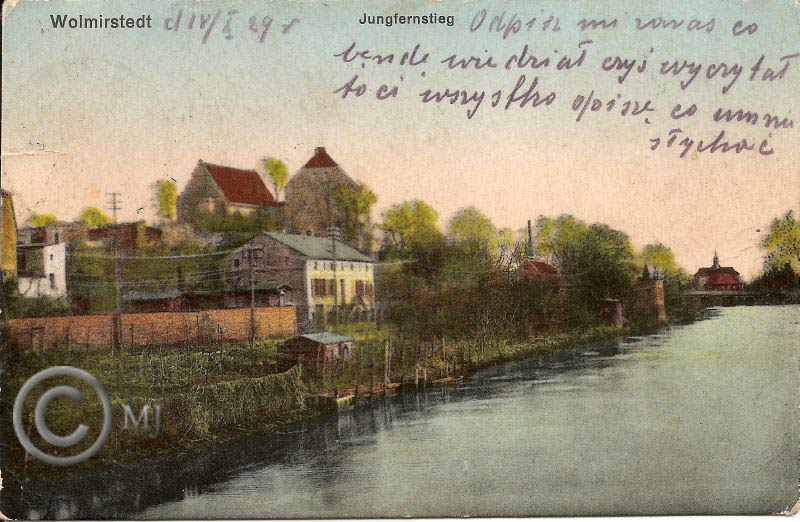 Wolmirstedt d IV/X 29 r
Jungfernstieg
Odpisz mi zaras co
bende wiedział czyś wyczytał
to ci wszystko opiszę co umnie
słychać
© MJ